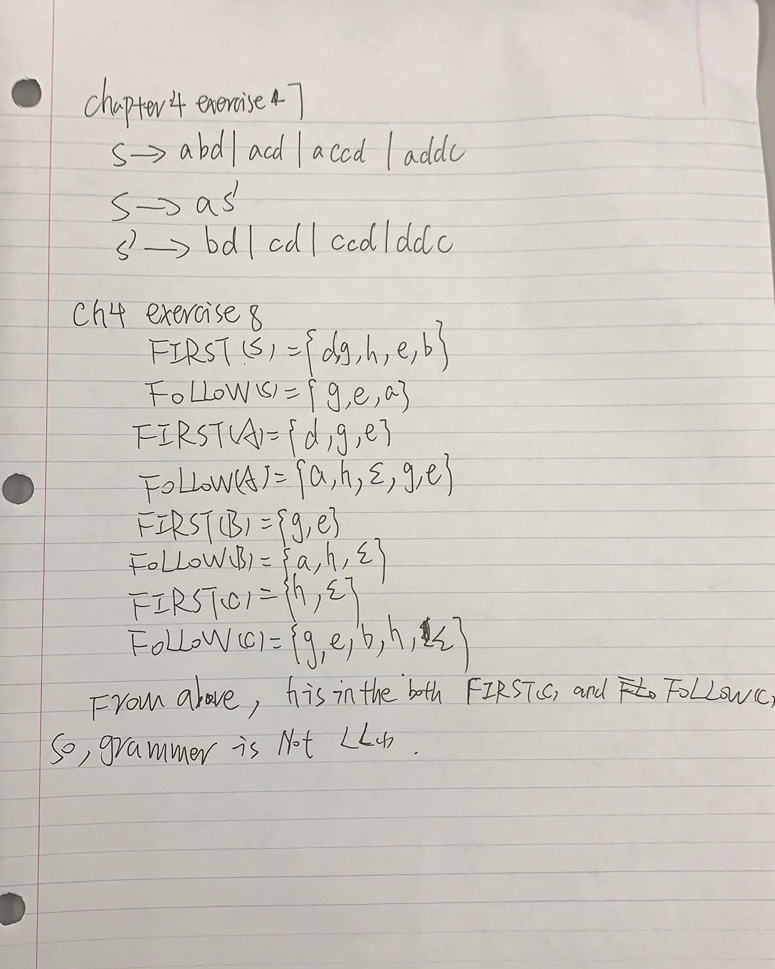 chapter 4 exercise 7
S → abd | acd | accd | addc
S → aS'
S' → bd | cd | ccd | ddc
Ch4 exercise 8
FIRST(S) = {d,g, h, e, b}
FOLLOW(S) = {g,e,a}
FIRST(A) = {d,g,e}
FOLLOW(A) = {a,h,Σ,g,e}
FIRST(B) = {g,e}
FOLLOW(B) = {a,h,Σ}
FIRST(C) = {h,Σ}
FOLLOW(C) = {g,e,b,h,Σ}
From above, h is in the both FIRST(C) and FOLLOW(C)
So, grammer is Not LL(1).